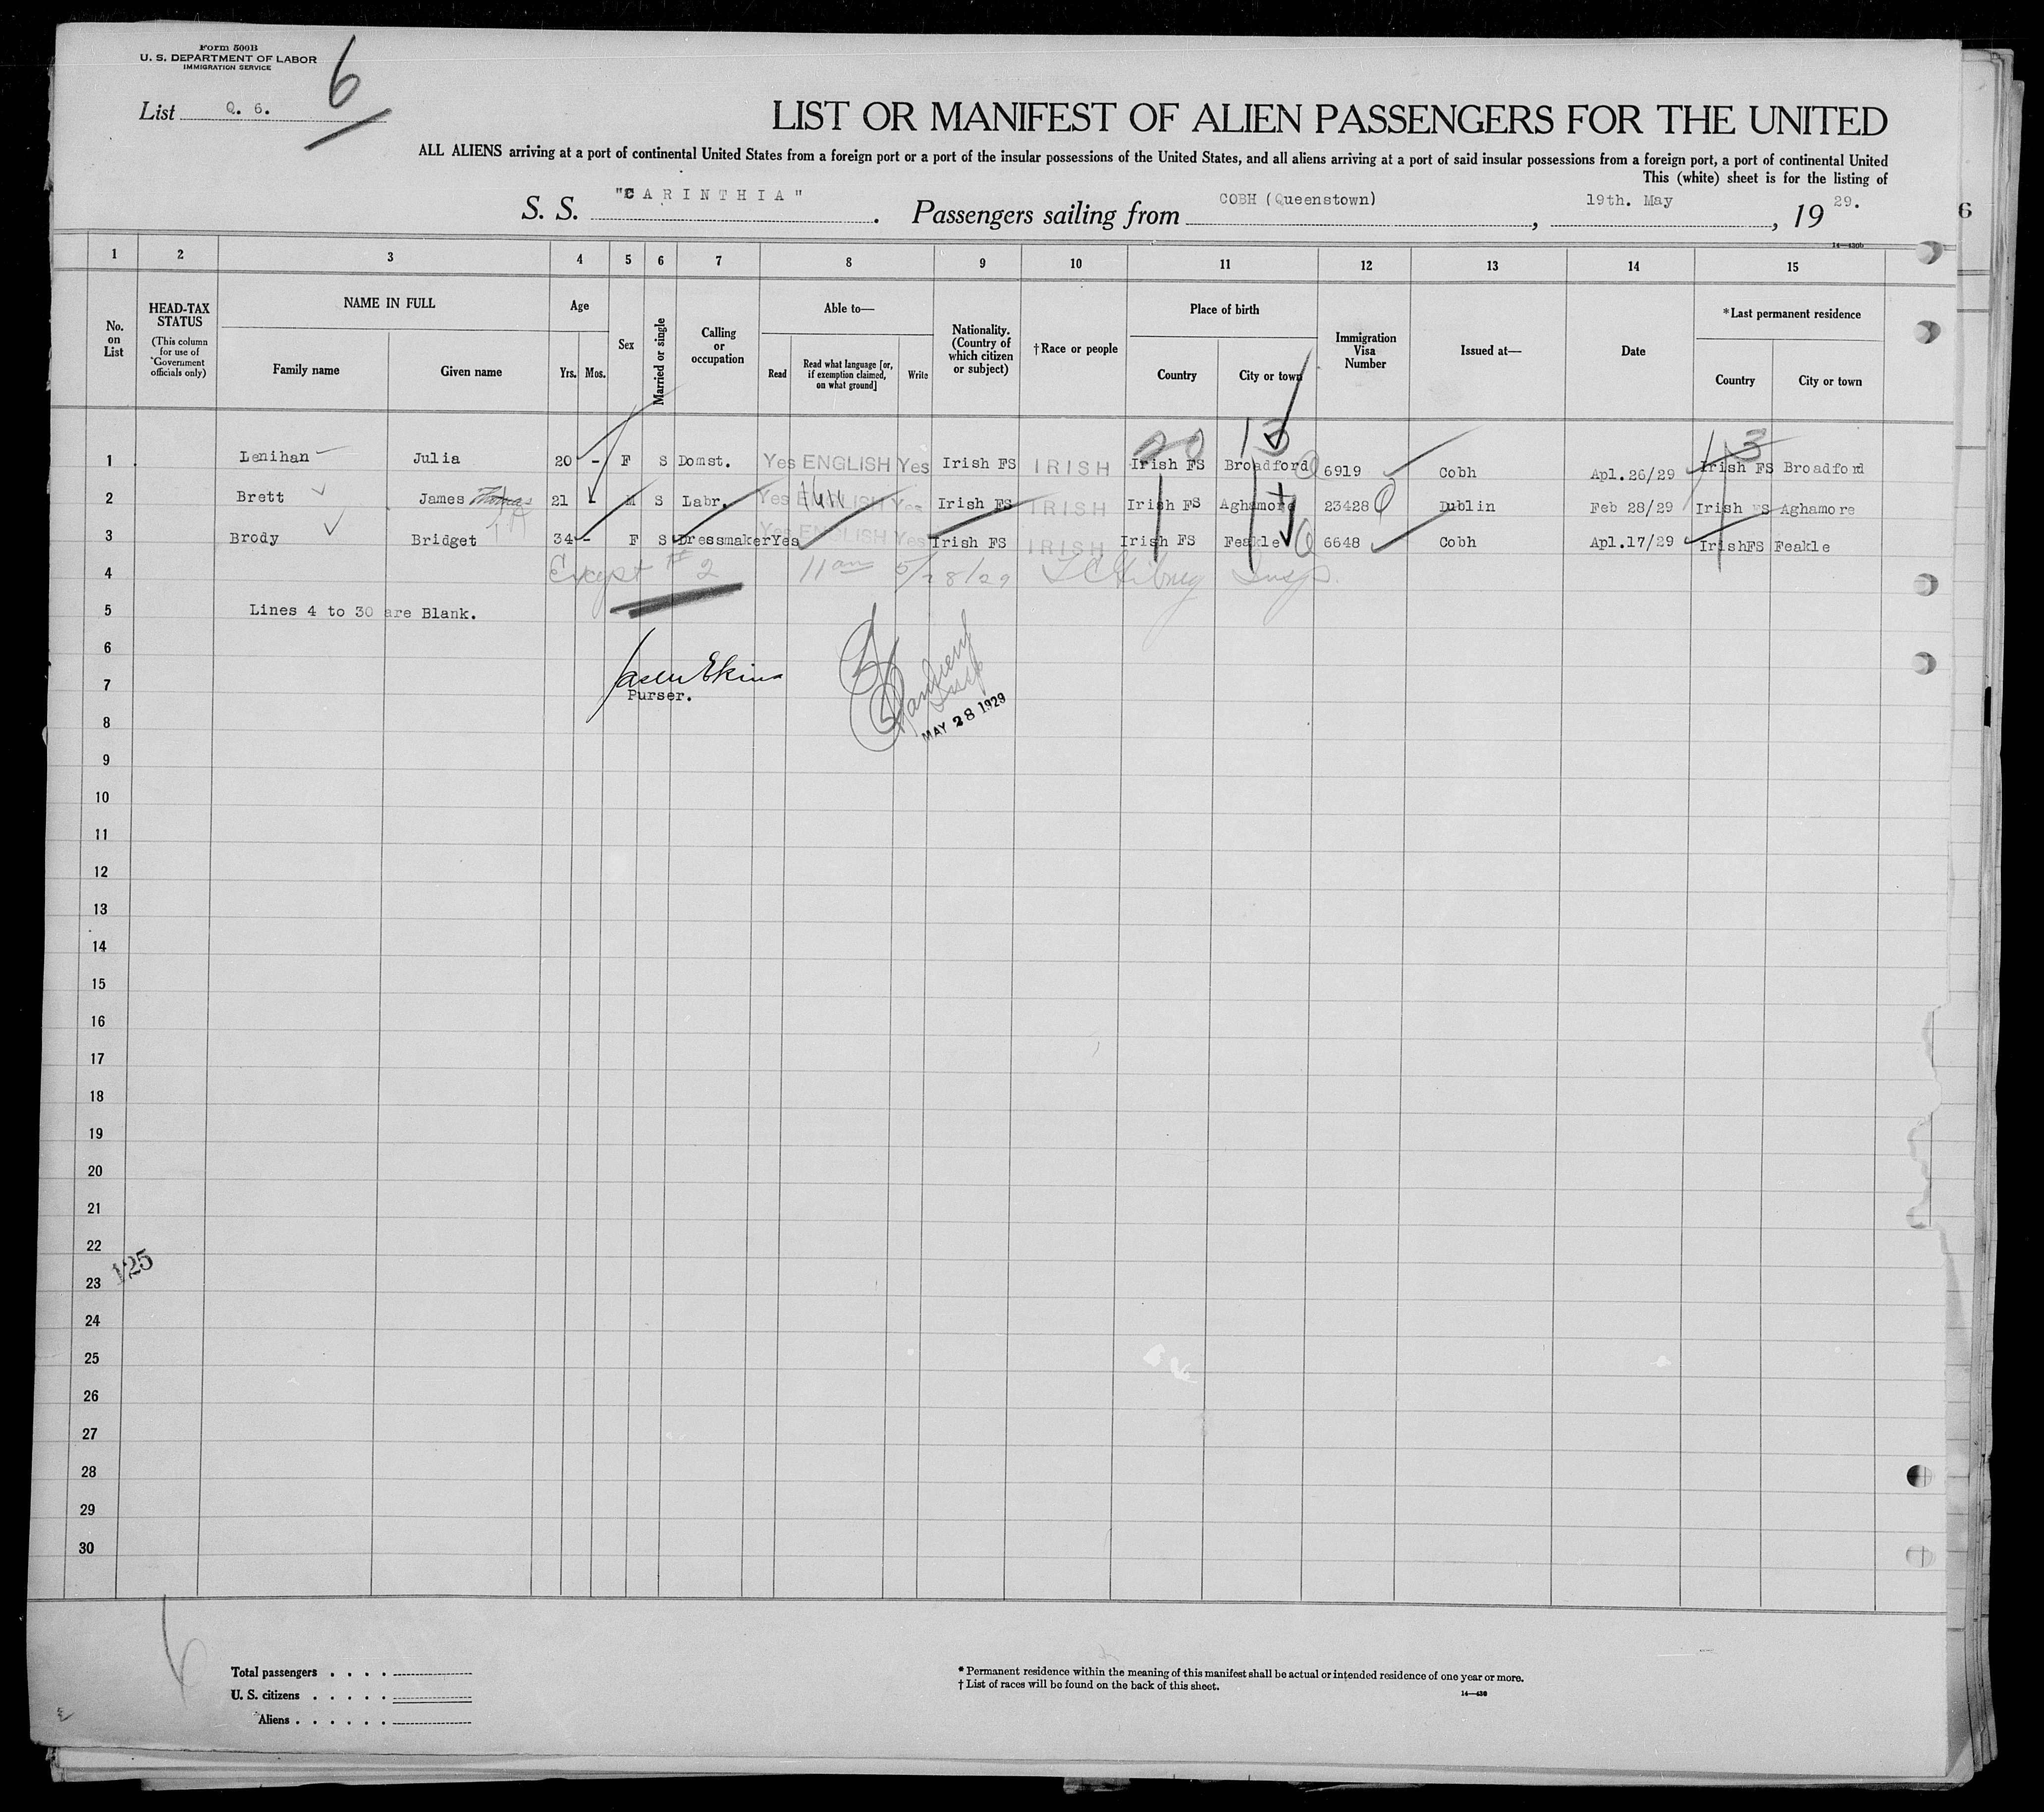 Form 500B
U. S. DEPARTMENT OF LABOR
IMMIGRATION SERVICE
6
List Q. 6.
LIST OR MANIFEST OF ALIEN PASSENGERS FOR THE UNITED
ALL ALIENS arriving at a port of continental United States from a foreign port or a port of the insular possessions of the United States, and all aliens arriving at a port of said insular possessions from a foreign port, a port of continental United
This (white) sheet is for the listing of
S. S. "CARINTHIA". Passengers sailing from COBH (Queenstown), 19th. May, 19 29.
6
14—430b
1 2 3 4 5 6 7 8 9 10 11 12 13 14 15
No. on List
HEAD-TAX STATUS (This column for use of Government officials only)
NAME IN FULL
Family name Given name
Age
Yrs. Mos.
Sex
Married or single
Calling or occupation
Able to—
Read Read what language [or, if exemption claimed, on what ground] Write
Nationality. (Country of which citizen or subject)
†Race or people
Place of birth
Country City or town
Immigration Visa Number
Issued at—
Date
*Last permanent residence
Country City or town
20 13 13
1 Lenihan Julia 20 - F S Domst. Yes ENGLISH Yes Irish FS IRISH Irish FS Broadford 6919 Cobh Apl.26/29 Irish FS Broadford
2 Brett James 21 M S Labr. Yes ENGLISH Yes Irish FS IRISH Irish FS Aghamore 23428 Dublin Feb 28/29 Irish FS Aghamore
3 Brody Bridget 34 - F S Dressmaker Yes Yes ENGLISH Yes Irish FS IRISH Irish FS Feakle 6648 Cobh Apl.17/29 IrishFS Feakle
4 Except #2 11 am 5/28/29 Insp.
5 Lines 4 to 30 are Blank.
6
7 Purser.
Insp
MAY 28 1929
8
9
10
11
12
13
14
15
16
17
18
19
20
21
22
125
23
24
25
26
27
28
29
30
Total passengers . . . .
U. S. citizens . . . . .
Aliens . . . . . .
* Permanent residence within the meaning of this manifest shall be actual or intended residence of one year or more.
† List of races will be found on the back of this sheet.
14—430